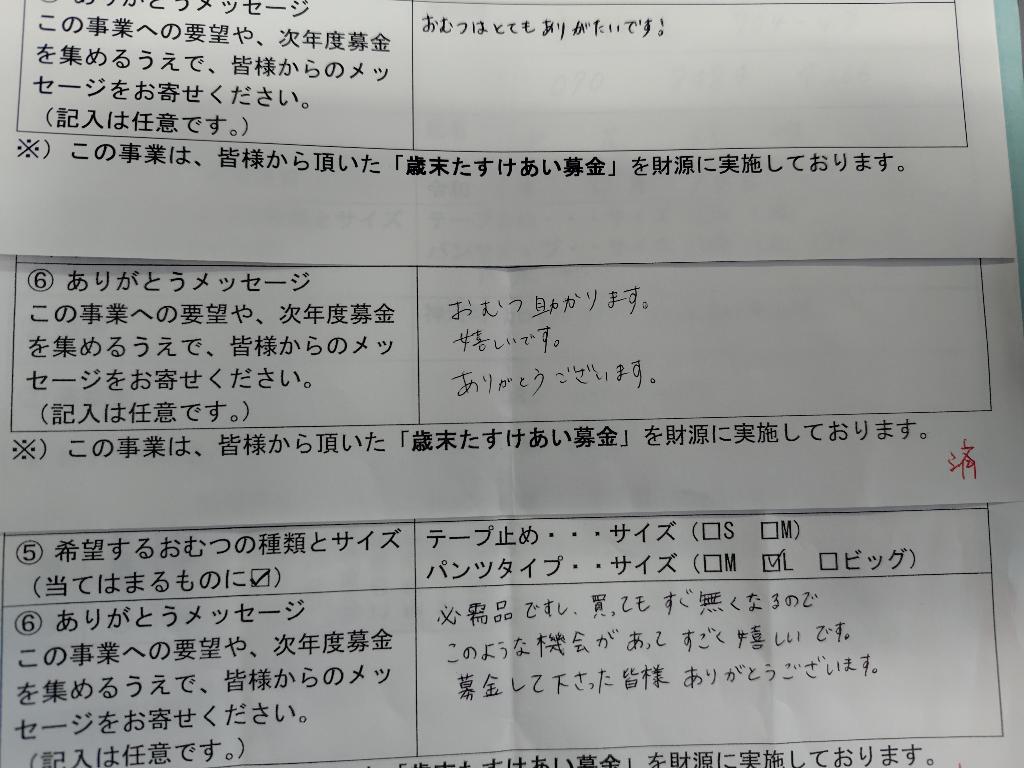 ありがとうメッセージ
この事業への要望や、次年度募金
を集めるうえで、皆様からのメッ
セージをお寄せください。
（記入は任意です。）
おむつはとてもありがたいです!
※）この事業は、皆様から頂いた「歳末たすけあい募金」を財源に実施しております。
⑥ ありがとうメッセージ
この事業への要望や、次年度募金
を集めるうえで、皆様からのメッ
セージをお寄せください。
（記入は任意です。）
おむつ助かります。
嬉しいです。
ありがとうございます。
※）この事業は、皆様から頂いた「歳末たすけあい募金」を財源に実施しております。
済
⑤ 希望するおむつの種類とサイズ
（当てはまるものに☑）
テープ止め・・・サイズ（□S □M）
パンツタイプ・・サイズ（□M ☑L □ビッグ）
⑥ ありがとうメッセージ
この事業への要望や、次年度募金
を集めるうえで、皆様からのメッ
セージをお寄せください。
（記入は任意です。）
必需品ですし、買ってもすぐ無くなるので
このような機会があってすごく嬉しいです。
募金して下さった皆様ありがとうございます。
「歳末たすけあい募金」を財源に実施しております。